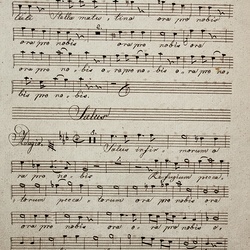 Stella matutina ora pro nobis
ora pro nobis ora pro nobis ora
ora pro no - bis o - ra pro no - bis o - ra pro no -
bis pro no - bis.
Salus
Adagio Salus infir - morum o
ra pro no - bis Refugium pecca -
torum pecca - torum ora pro nobis
ora pro nobis o - ra pro